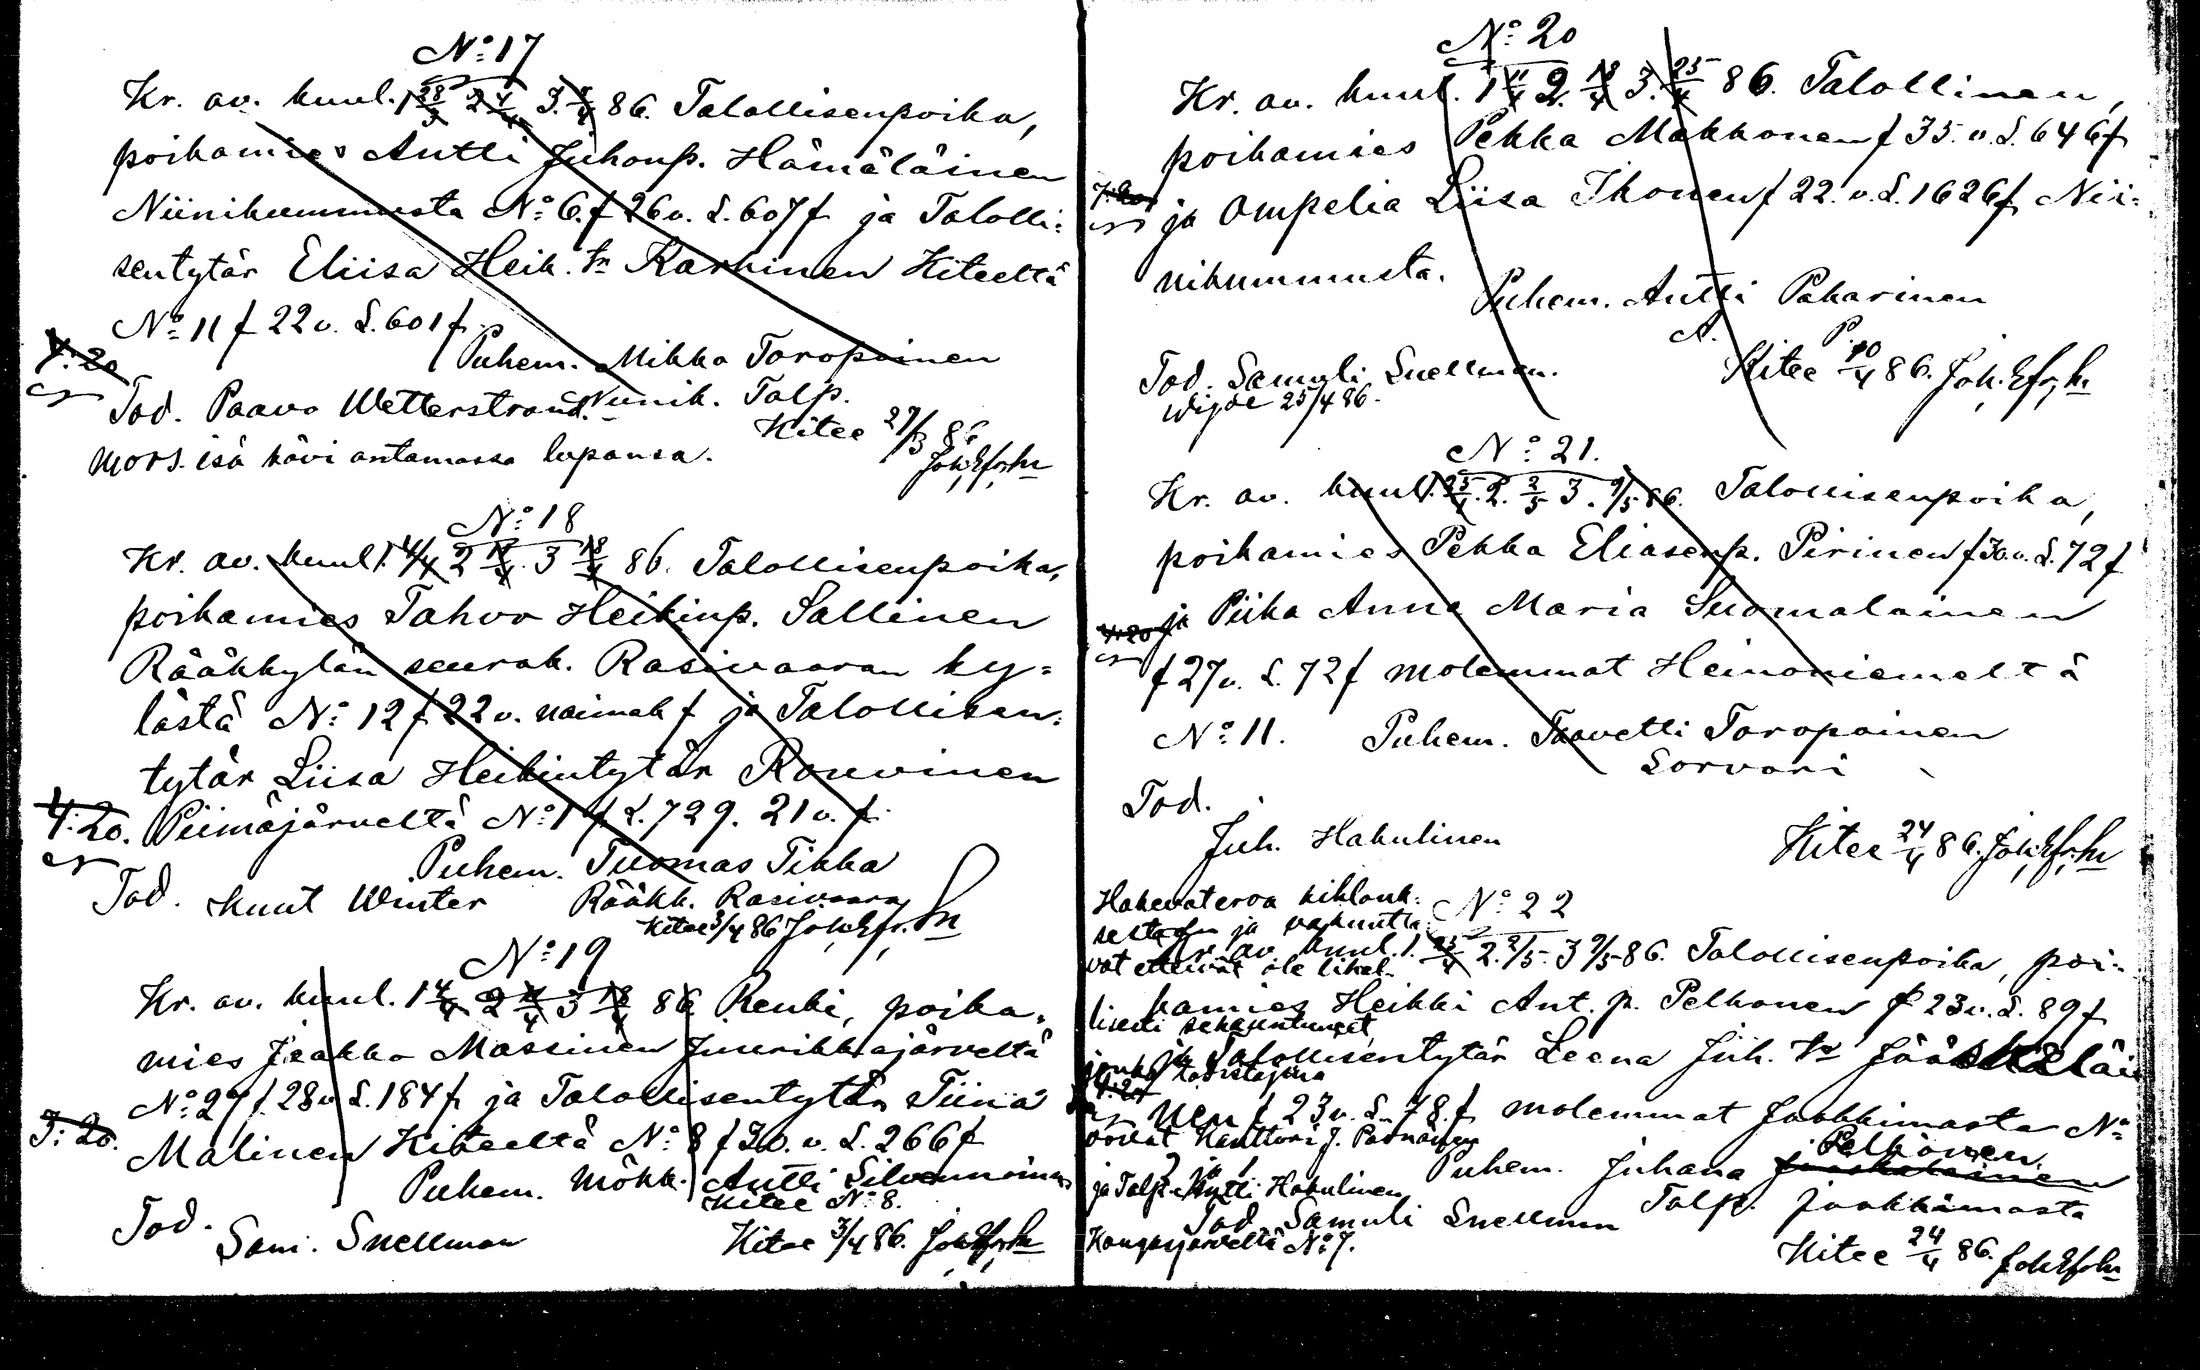 No 17
Kr. av. kuul. 1 28/3 2 4/4 3. /4 86. Talollisenpoika,
poikamies Antti Juhonp. Hämäläinen
Niinikummusta No 6. f 26 v. S. 607 f ja Talolli-
sentytär Eliisa Heik. tr Karhinen Kiteeltä
No 11 f 22 v. S. 601 f.
Puhem. Mikko Toropainen
4: 20
Niinik. Talp.
Tod. Paavo Wetterstrand.
Kitee 27/3 86
mors. isä kävi antamassa lupansa.
No 18
Kr. av. kuul. 1 4/4 2 11/4. 3 18/4 86. Talollisenpoika,
poikamies Tahvo Heikinp. Sallinen
Rääkkylän seurak. Rasivaaran ky-
lästä No 12 f 22 v. naimat f ja Talollisen-
tytär Liisa Heikintytär Rouvinen
4: 20. Piimäjärveltä No 1 f S. 729. 21 v. f.
Puhem. Tuomas Tikka
Tod. Knut Winter Rääkk. Rasivaara
Kitee 3/4 86
No 19
Kr. av. kuul. 1 4/4 2 11/4 3 18/4 86 Renki, poika-
mies Jaakko Massinen Juurikkajärveltä
No 27 f. 28 v S. 184 f. ja Talollisentytär Tiina
3: 20. Malinen Kiteeltä No 8 f 30. v. S. 266 f
Puhem. Mökk. Antti Silvennoinen
Kitee No 8.
Tod. Sam. Snellman
Kitee 3/4 86.
No 20
Kr. av. kuul. 1 11/4 2. 18/4 3. 25/4 86. Talollinen,
poikamies Pekka Makkonen f 35. v. S. 646 f
ja Ompelia Liisa Ikonen f 22. v. S. 1626 f. Nii-
nikummusta.
Puhem. Antti Pakarinen
A. P.
Tod. Samuli Snellman.
Kitee 10/4 86.
25/4 86.
No 21.
Kr. av. kuul. 1. 25/4. 2. 2/5 3. 9/5 86. Talollisenpoika,
poikamies Pekka Eliasenp. Pirinen f 30. v. S. 72 f
ja Piika Anna Maria Suomalainen
4: 20
f 27 v. S. 72 f molemmat Heinoniemeltä
No 11. Puhem. Taavetti Toropainen
Sorvari
Tod.
Juh. Hakulinen
Kitee 24/4 86.
Hakevat eroa kihlauk-
No 22
sestaan ja vakuutta-
Kr. av. kuul. 1. 25/4 2. 2/5. 3 9/5 86. Talollisenpoika, poi-
vat etteivät ole likel-
kamies Heikki Ant. p. Pelkonen f 23 v. S. 89 f
lisesti sekaantuneet,
ja Talollisentytär Leena Juh. tr Jääskeläi
jonka todistajina
4: 20
nen f 23 v. S. 78. f molemmat Jaakkimasta No
ovat Kanttori J. Parnanen
Pelkonen.
Puhem. Juhana Jääskeläinen
ja Talp. Antti Hakulinen
Talp. Jaakkimasta
Tod. Samuli Snellman
Kangasjärveltä No 7.
Kitee 24/4 86.